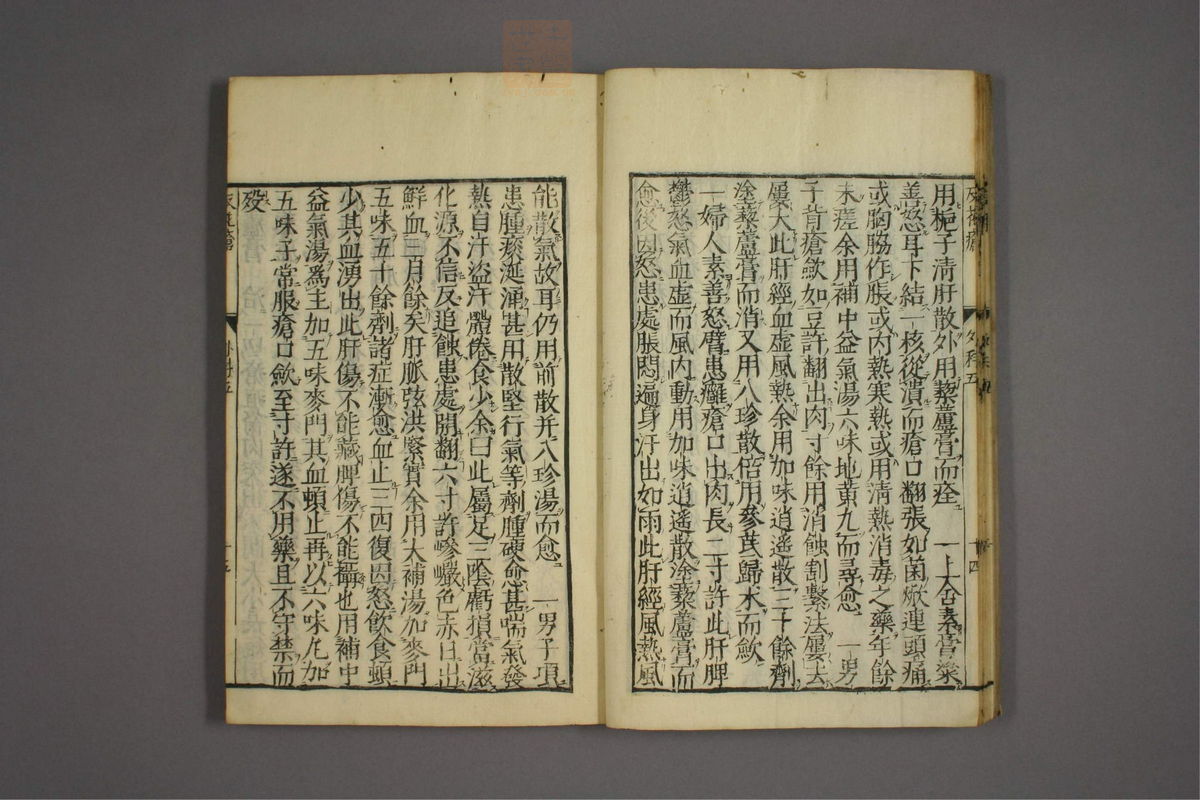 用梔子淸肝散外用藜蘆膏而痊　一上舍素膏粱
善怒耳下結一核從潰而瘡口翻張如菌焮連頭痛
或胸脇作脹或内熱寒熱或用淸熱消毒之藥年餘
未瘥余用補中益氣湯六味地黄丸而尋愈　一男
子背瘡歛如豆許翻出肉寸餘用消蝕割繫法屢去
屢大此肝經血虛風熱余用加味逍遙散三十餘劑
塗藜蘆膏而消又用八珍散倍用參芪歸朮而歛
一婦人素善怒臂患癰瘡口出肉長二寸許此肝脾
鬱怒氣血虛而風内動用加味逍遙散塗藜蘆膏而
愈後因怒患處脹悶遍身汗出如雨此肝經風熱風
能散氣故耳仍用前散并八珍湯而愈　一男子項
患腫痰涎涌甚用散堅行氣等劑腫硬愈甚喘氣發
熱自汗盜汗體倦食少余曰此屬足三陰虧損當滋
化源不信反追蝕患處開翻六寸許巉巖色赤日出
鮮血三月餘矣肝脈弦洪緊實余用大補湯加麥門
五味五十餘劑諸症漸愈血止三四復因怒飮食頓
少其血湧出此肝傷不能藏脾傷不能攝也用補中
益氣湯爲主加五味麥門其血頓止再以六味丸加
五味子常服瘡口歛至寸許遂不用藥且不守禁而
歿
外科五
十四
外科五
十五